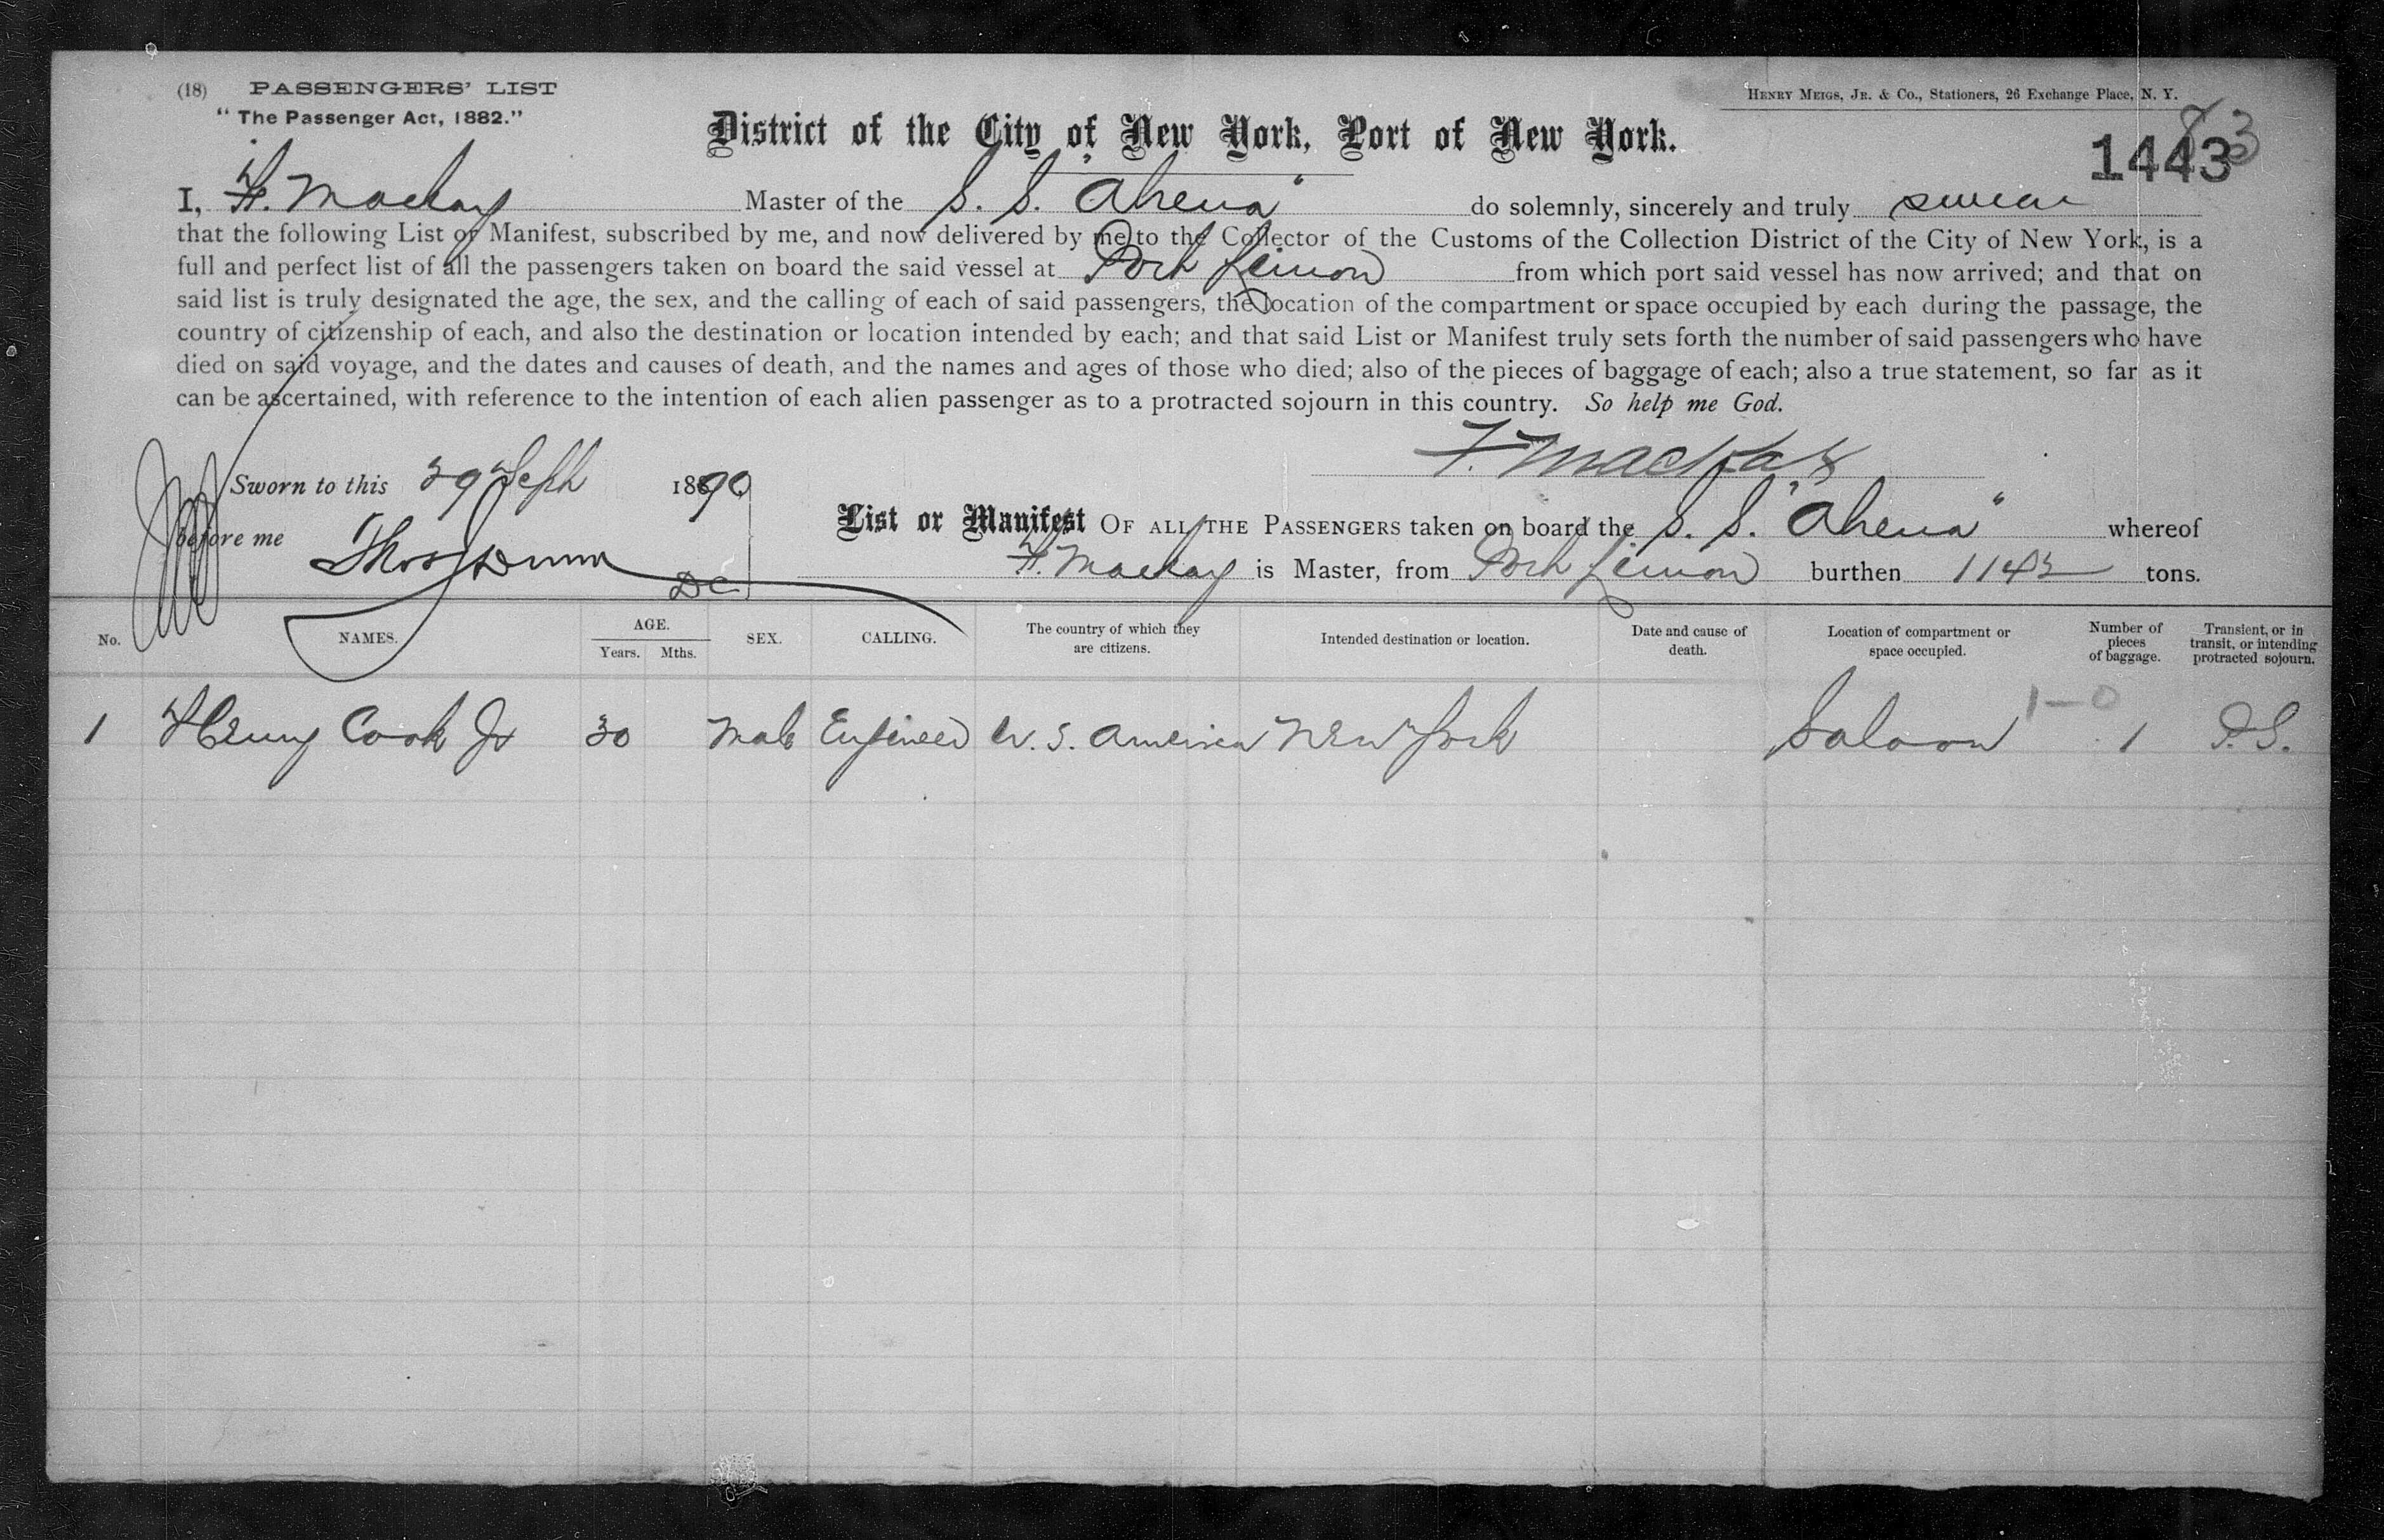 (18) PASSENGERS' LIST
HENRY MEIGS, JR. & CO., Stationers, 26 Exchange Place, N. Y.
"The Passenger Act, 1882."
District of the City of New York, Port of New York.
83
1443
I, F. Mackay Master of the S. S. "Athena" do solemnly, sincerely and truly swear
that the following List or Manifest, subscribed by me, and now delivered by me to the Collector of the Customs of the Collection District of the City of New York, is a
full and perfect list of all the passengers taken on board the said vessel at Port Limon from which port said vessel has now arrived; and that on
said list is truly designated the age, the sex, and the calling of each of said passengers, the location of the compartment or space occupied by each during the passage, the
country of citizenship of each, and also the destination or location intended by each; and that said List or Manifest truly sets forth the number of said passengers who have
died on said voyage, and the dates and causes of death, and the names and ages of those who died; also of the pieces of baggage of each; also a true statement, so far as it
can be ascertained, with reference to the intention of each alien passenger as to a protracted sojourn in this country. So help me God.
F. Mackay
Sworn to this 29 Sept 1890
List or Manifest OF ALL THE PASSENGERS taken on board the S. S. "Athena" whereof
before me Thos Dunn DC
F. Mackay is Master, from Port Limon burthen 1143 tons.
No. NAMES. AGE. Years. Mths. SEX. CALLING. The country of which they are citizens. Intended destination or location. Date and cause of death. Location of compartment or space occupied. Number of pieces of baggage. Transient, or in transit, or intending protracted sojourn.
1-0
1 Henry Cook Jr 30 Male Engineer U. S. America New York Saloon 1 P. S.